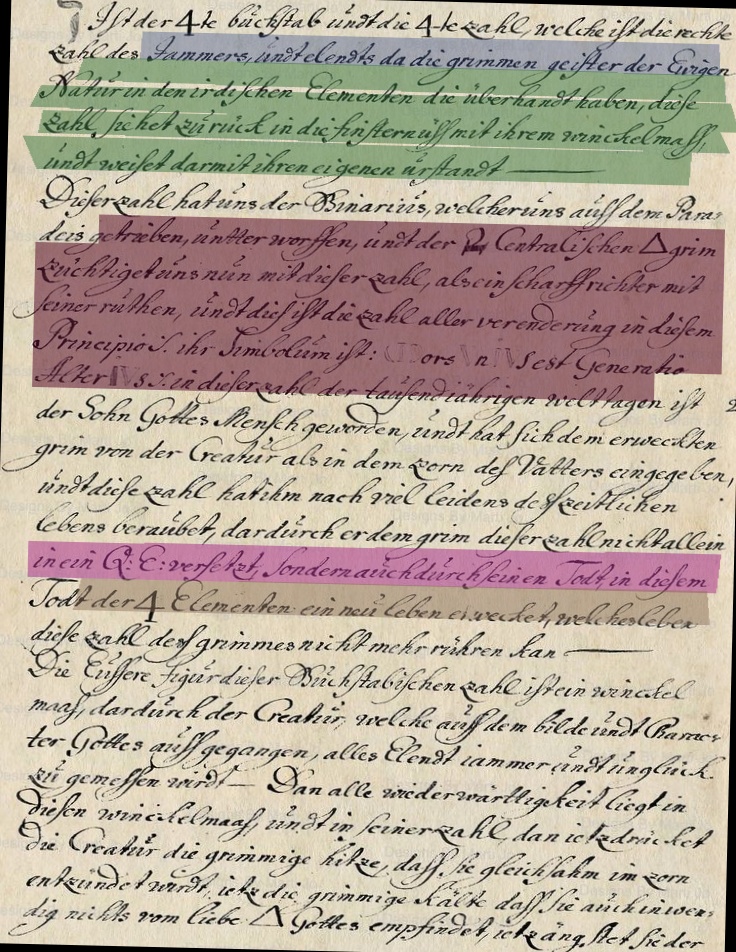 Ist der 4te buchstab undt die 4te zahl, welche ist die rechte
zahl des Jammers, undt elendts da die grimmen geister der Ewigen
Natur in den irdischen Elementen die überhandt haben, diese
zahl siehet zurück in die finsternüß mit ihrem winckelmaß,
undt weiset darmit ihren eigenen urstandt —
Dieser zahl hat uns der Binarius, welcher uns auß dem Para-
deis getrieben, untter worffen, undt der Centralischen △ grim
züchtiget uns nun mit dieser zahl, als ein scharffrichter mit
seiner ruthen, undt dies ist die zahl aller verenderung in diesem
Principio S. ihr Simbolum ist: Mors est Generatio
Alterius S. in dieser zahl der tausend iährigen welt tagen ist
der Sohn Gottes Mensch geworden, undt hat sich dem erweckten
grim von der Creatur als in dem zorn deß Vatters eingegeben,
undt diese zahl hat ihm nach viel leidens deß zeitlichen
lebens beraubet, dardurch er dem grim dieser zahl nicht allein
in ein Q: E: versetzt, sondern auch durch seinen Todt, in diesem
Todt der 4 Elementen ein neu leben erwecket, welches leben
diese zahl deß grimmes nicht mehr rühren kan —
Die Eussere figur dieser Buchstabischen zahl ist ein winckel
maaß, dardurch der Creatur, welche auß dem bilde undt Charac-
ter Gottes auß gegangen, alles Elendt iammer undt unglück
zu gemessen wirdt — Dan alle wiederwärttigkeit liegt in
diesen winckelmaaß, undt in seiner zahl, dan ietz drücket
die Creatur die grimmige hitze, daß sie gleichsahm im zorn
entzündet wirdt, ietz die grimmige Kälte daß sie auch inwen-
dig nichts vom liebe △ Gottes empfindet, ietz ängstet sie der